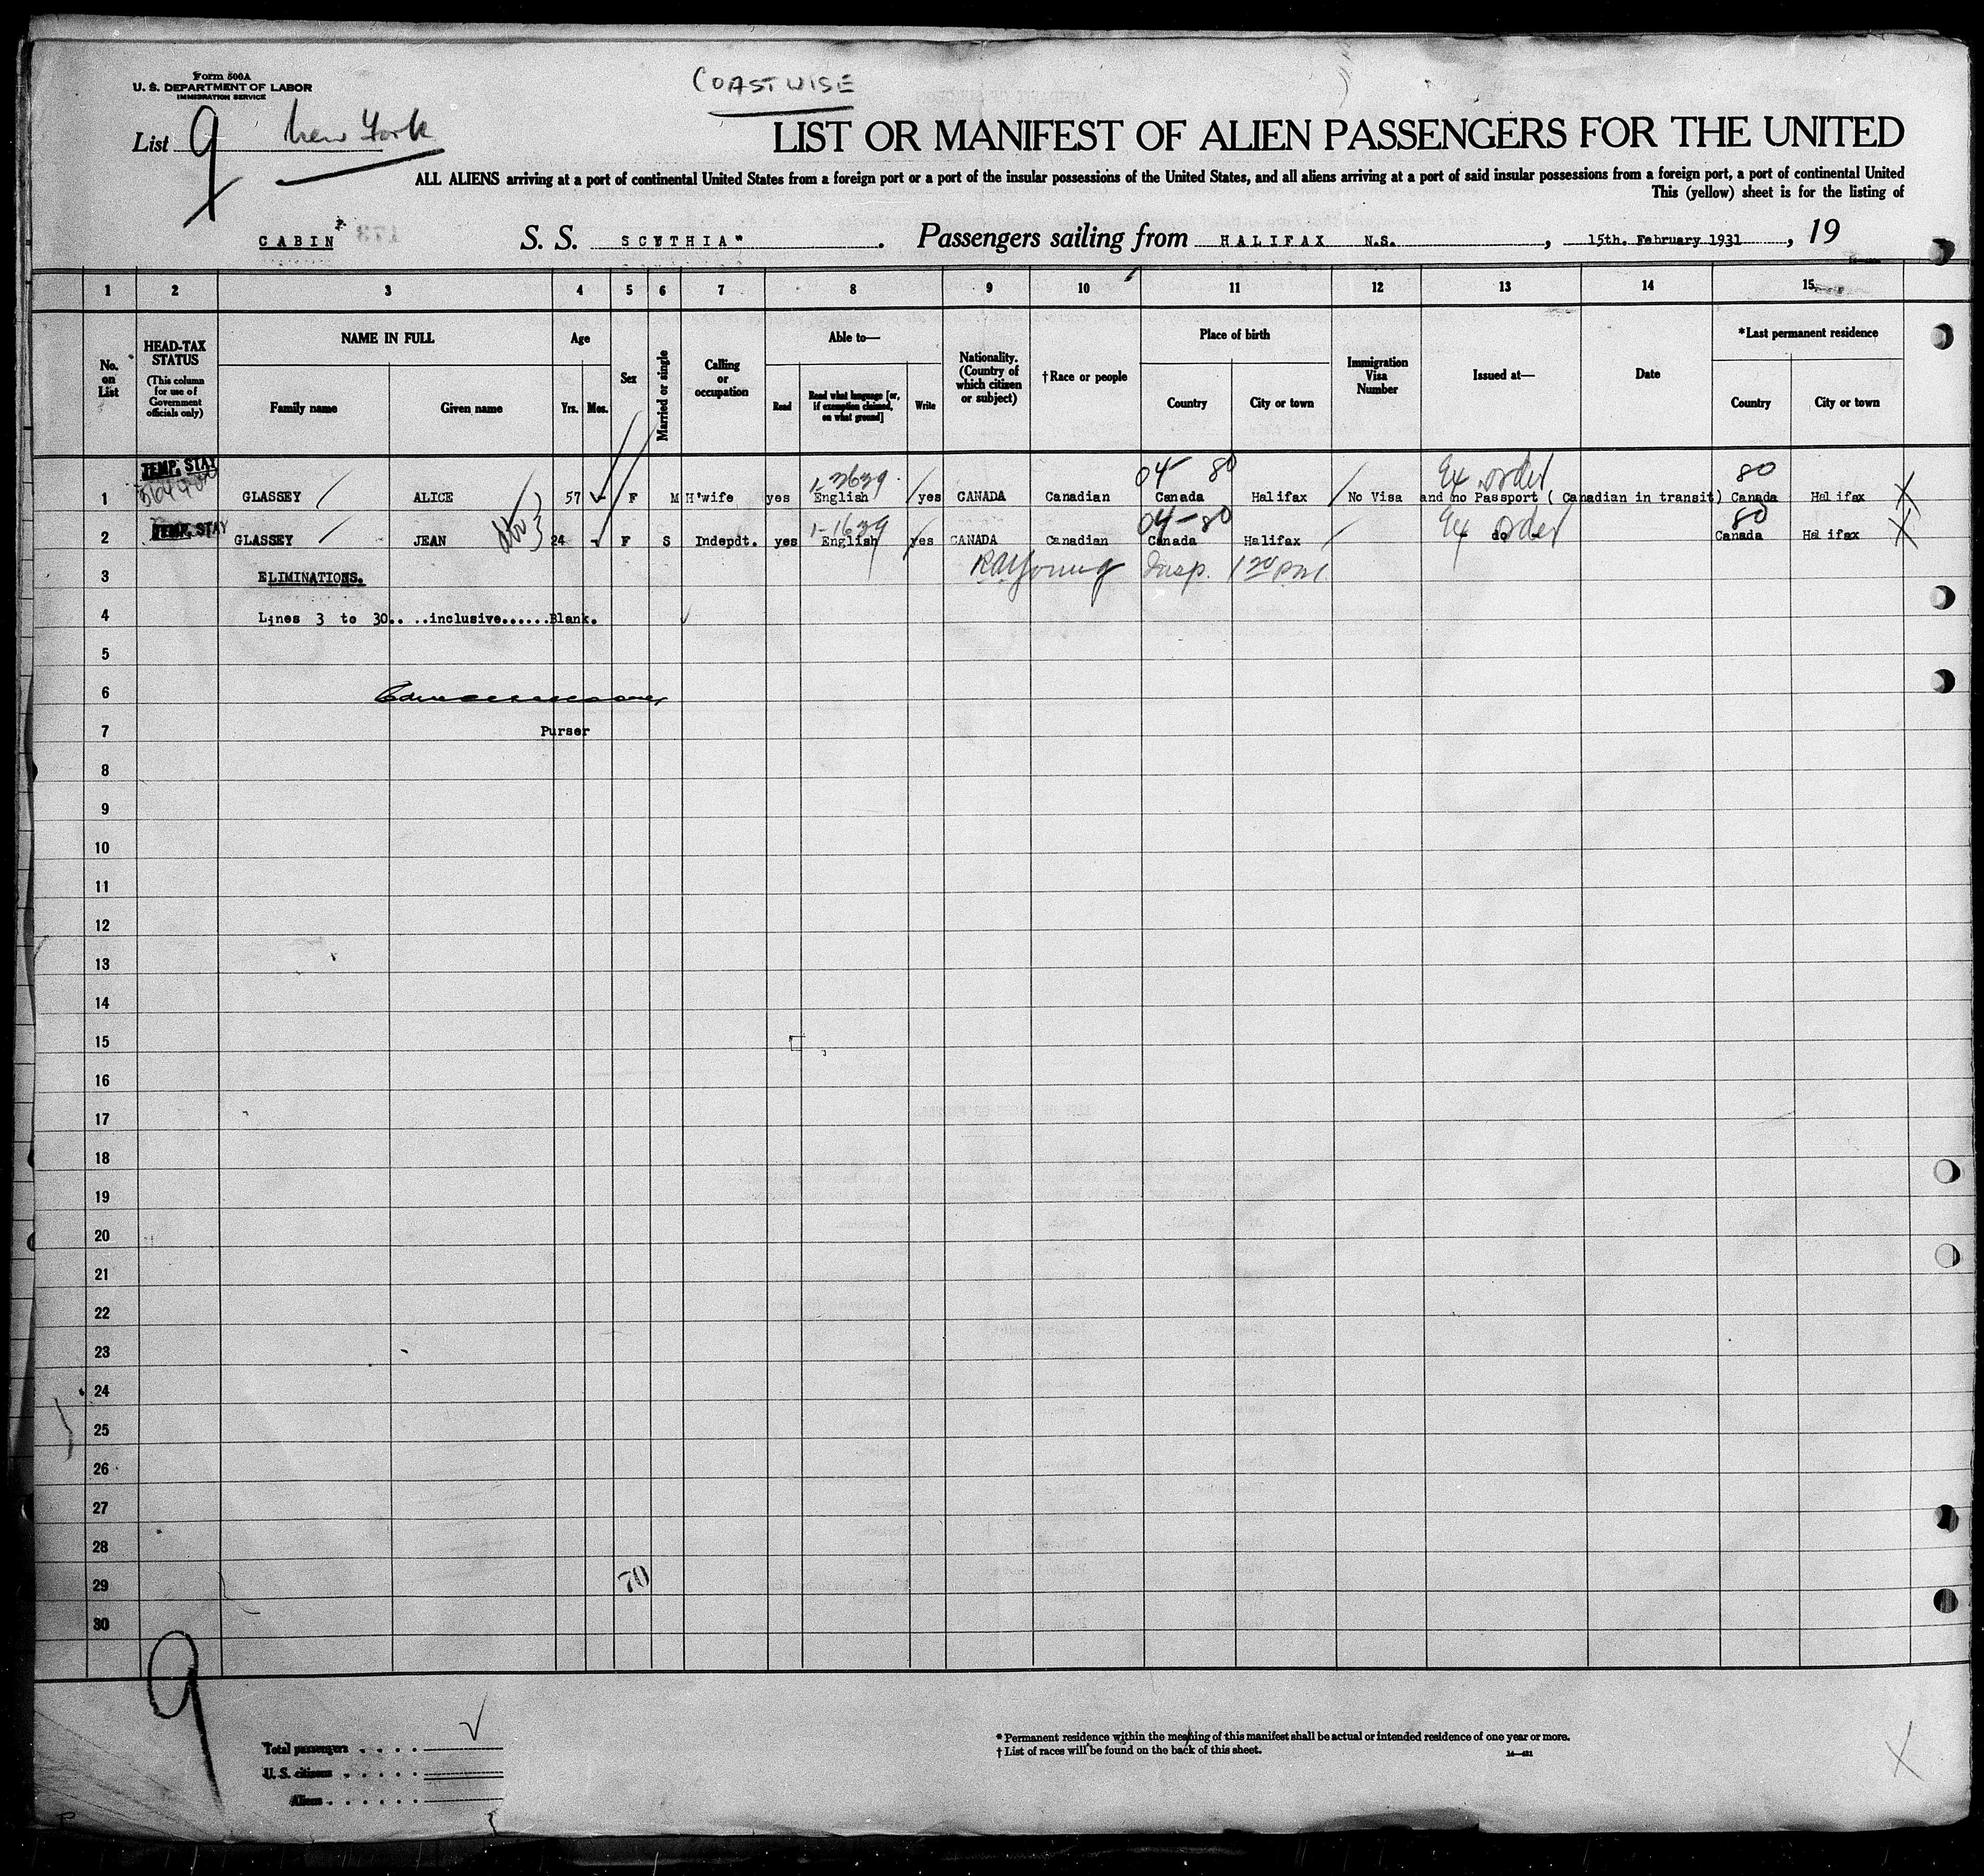 Form 500A
U. S. DEPARTMENT OF LABOR
IMMIGRATION SERVICE
COASTWISE
List 9 New York
LIST OR MANIFEST OF ALIEN PASSENGERS FOR THE UNITED
ALL ALIENS arriving at a port of continental United States from a foreign port or a port of the insular possessions of the United States, and all aliens arriving at a port of said insular possessions from a foreign port, a port of continental United
This (yellow) sheet is for the listing of
CABIN S. S. SCYTHIA" . Passengers sailing from HALIFAX N.S. , 15th. February 1931 , 19
1 2 3 4 5 6 7 8 9 10 11 12 13 14 15
No. on List
HEAD-TAX STATUS
(This column for use of Government officials only)
NAME IN FULL
Family name Given name
Age
Yrs. Mos.
Sex
Married or single
Calling or occupation
Able to—
Read
Read what language [or, if exemption claimed, on what ground]
Write
Nationality. (Country of which citizen or subject)
†Race or people
Place of birth
Country City or town
Immigration Visa Number
Issued at—
Date
*Last permanent residence
Country City or town
TEMP. STAY 1-3639 04- 80 Ex order 80
1 GLASSEY ALICE 57 - F M H'wife yes English yes CANADA Canadian Canada Halifax No Visa and no Passport ( Canadian in transit) Canada Halifax X
TEMP. STAY 1-1639 04-80 Ex order 80
2 GLASSEY JEAN 24 - F S Indepdt. yes English yes CANADA Canadian Canada Halifax do Canada Halifax X
3 ELIMINATIONS. RAYoung Insp. 120 pm
4 Lines 3 to 30.. ..inclusive......Blank.
5
6
7 Purser
8
9
10
11
12
13
14
15
16
17
18
19
20
21
22
23
24
25
26
27
28
29 70
30
9
Total passengers . . . .
U. S. citizens . . . . .
Aliens . . . . . .
* Permanent residence within the meaning of this manifest shall be actual or intended residence of one year or more.
† List of races will be found on the back of this sheet.
X